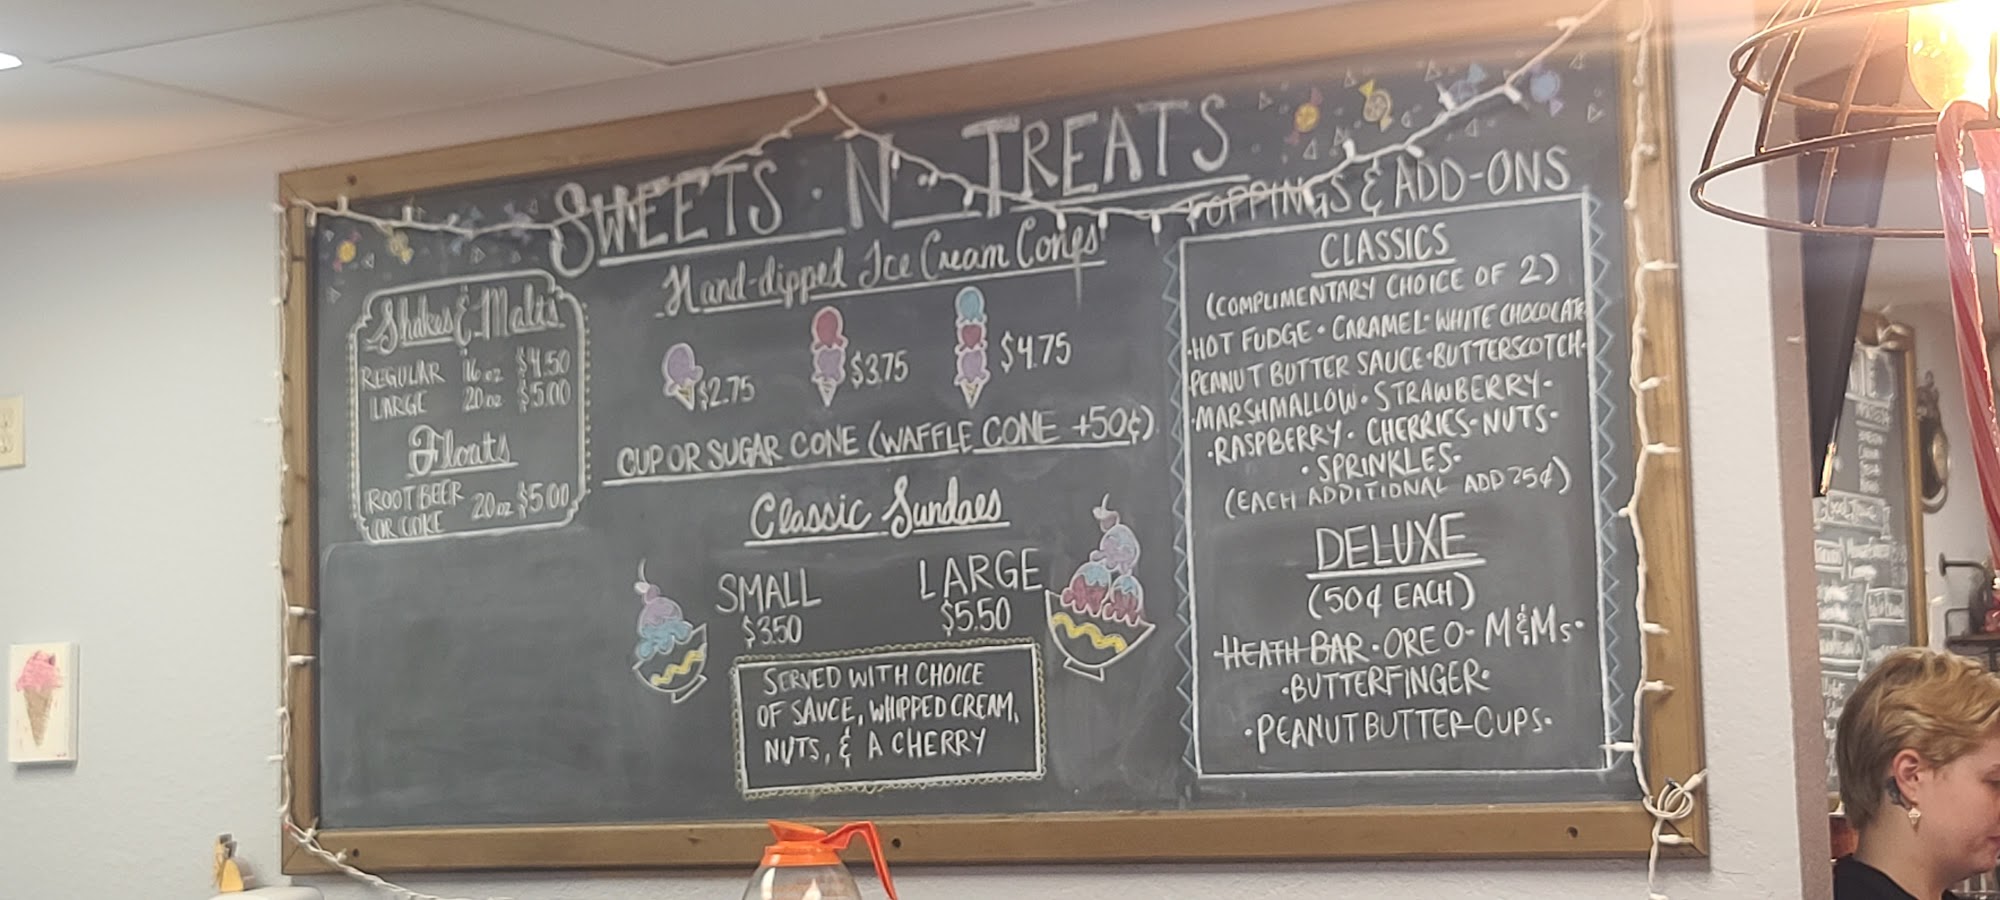 SWEETS · N · TREATS
Shakes & Malts
REGULAR 16oz $4.50
LARGE 20oz $5.00
Floats
ROOT BEER
OR COKE 20oz $5.00
Hand-dipped Ice Cream Cones
$2.75 $3.75 $4.75
CUP OR SUGAR CONE (WAFFLE CONE +50¢)
Classic Sundaes
SMALL LARGE
$3.50 $5.50
SERVED WITH CHOICE
OF SAUCE, WHIPPED CREAM,
NUTS, & A CHERRY
TOPPINGS & ADD-ONS
CLASSICS
(COMPLIMENTARY CHOICE OF 2)
·HOT FUDGE·CARAMEL·WHITE CHOCOLATE
·PEANUT BUTTER SAUCE·BUTTERSCOTCH·
·MARSHMALLOW·STRAWBERRY·
·RASPBERRY·CHERRIES·NUTS·
·SPRINKLES·
(EACH ADDITIONAL ADD 25¢)
DELUXE
(50¢ EACH)
·HEATH BAR·OREO·M&Ms·
·BUTTERFINGER·
·PEANUT BUTTER CUPS·